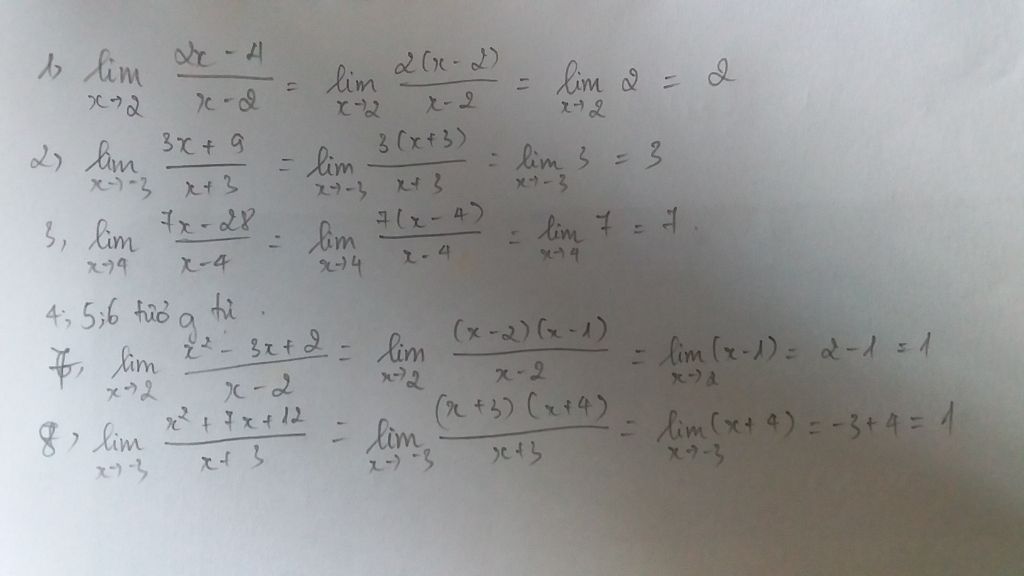 1) lim x→2 (2x - 4)/(x - 2) = lim x→2 2(x - 2)/(x - 2) = lim x→2 2 = 2
2) lim x→-3 (3x + 9)/(x + 3) = lim x→-3 3(x + 3)/(x + 3) = lim x→-3 3 = 3
3, lim x→4 (7x - 28)/(x - 4) = lim x→4 7(x - 4)/(x - 4) = lim x→4 7 = 7.
4; 5; 6 tươ g tự.
7, lim x→2 (x² - 3x + 2)/(x - 2) = lim x→2 (x - 2)(x - 1)/(x - 2) = lim x→2 (x - 1) = 2 - 1 = 1
8, lim x→-3 (x² + 7x + 12)/(x + 3) = lim x→-3 (x + 3)(x + 4)/(x + 3) = lim x→-3 (x + 4) = -3 + 4 = 1